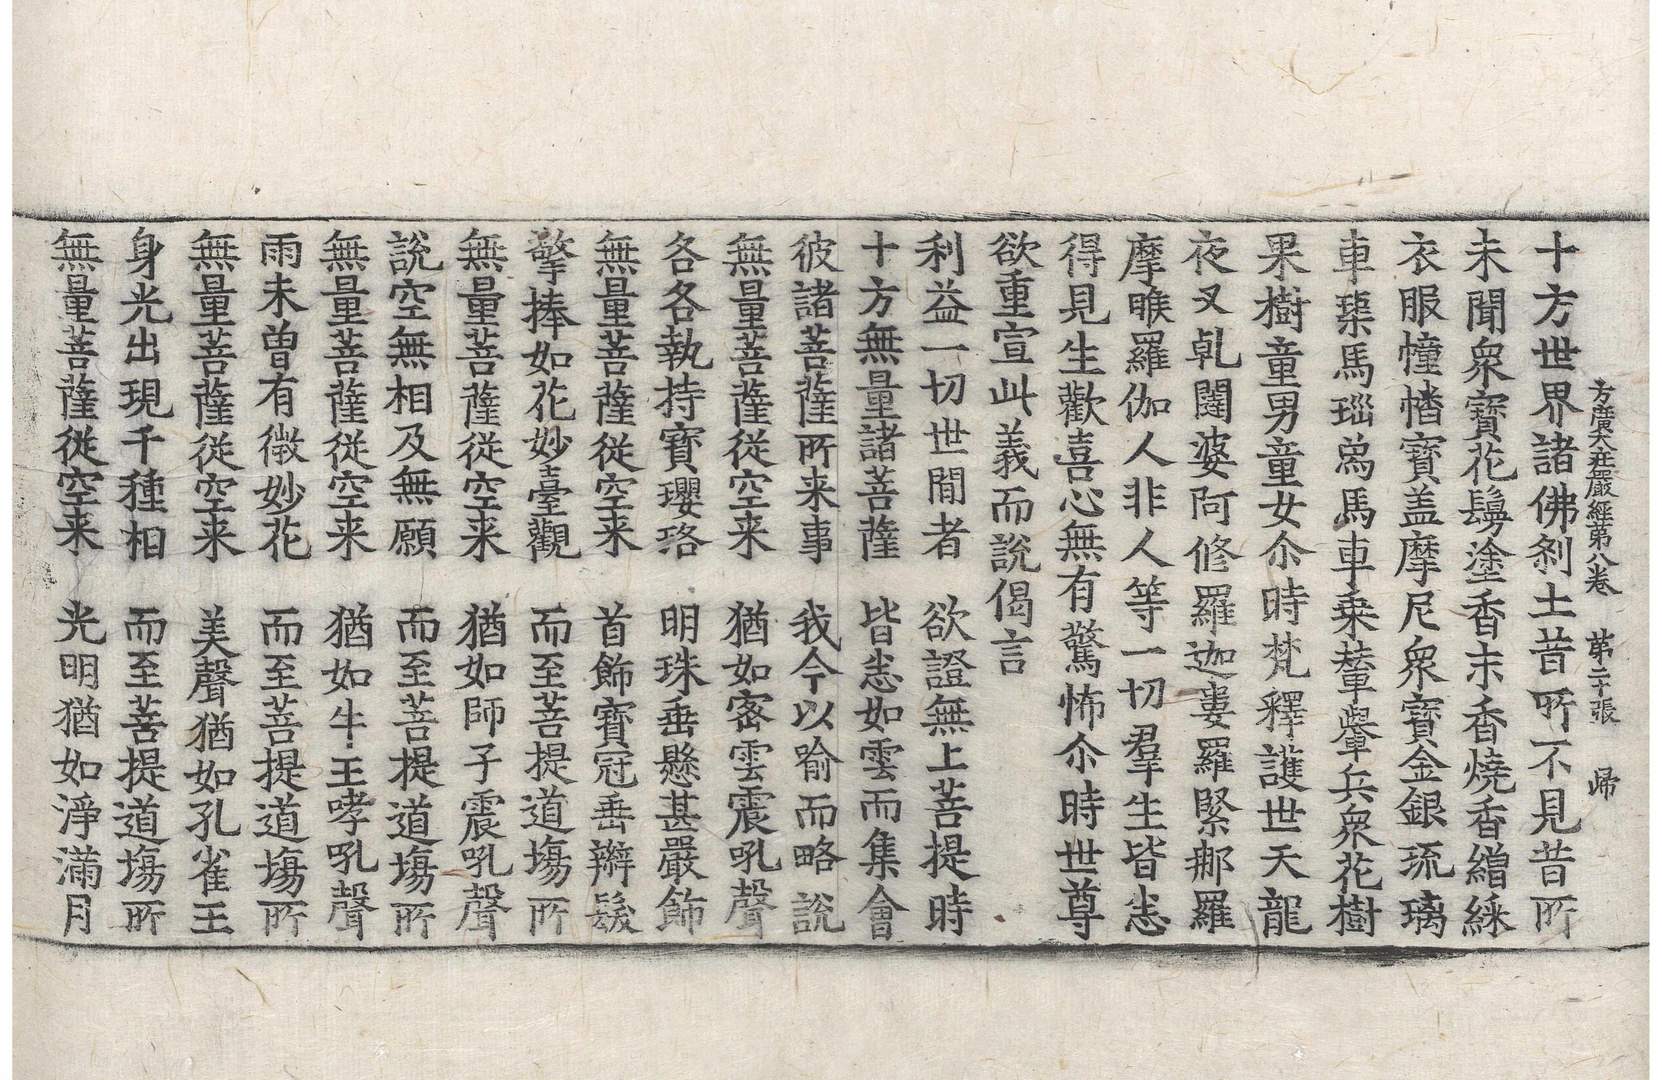 方廣大莊嚴經第八卷 第二十張 歸
十方世界諸佛刹土昔所不見昔所
未聞衆寶花鬘塗香末香燒香繒綵
衣服幢幡寶盖摩尼衆寶金銀琉璃
車𤦲馬瑙爲馬車乗輦轝兵衆花樹
果樹童男童女尒時梵釋護世天龍
夜叉乹闥婆阿修羅迦婁羅緊那羅
摩睺羅伽人非人等一切羣生皆悉
得見生歡喜心無有驚怖尒時世尊
欲重宣此義而說偈言
利益一切世閒者 欲證無上菩提時
十方無量諸菩薩 皆悉如雲而集會
彼諸菩薩所来事 我今以喻而略說
無量菩薩從空来 猶如密雲震吼聲
各各執持寶瓔珞 明珠垂懸甚嚴飾
無量菩薩從空来 首飾寶冠垂辮髮
擎捧如花妙臺觀 而至菩提道塲所
無量菩薩從空来 猶如師子震吼聲
說空無相及無願 而至菩提道塲所
無量菩薩從空来 猶如牛王哮吼聲
雨未曽有微妙花 而至菩提道塲所
無量菩薩從空来 美聲猶如孔雀王
身光出現千種相 而至菩提道塲所
無量菩薩從空来 光明猶如淨滿月